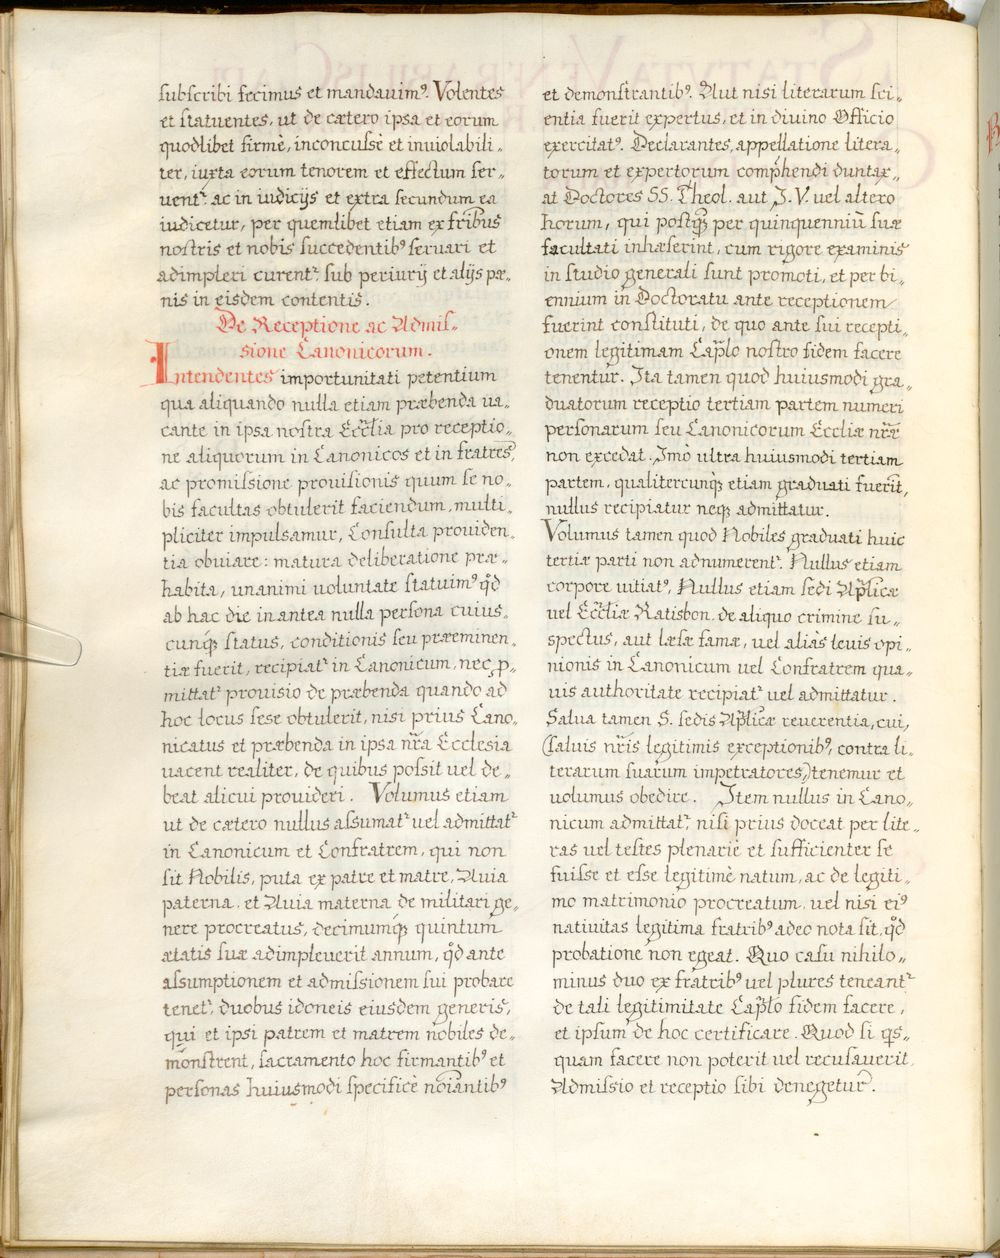 subscribi fecimus et mandauimꝰ. Volentes
et statuentes, ut de cætero ipsa et eorum
quodlibet firmè, inconculsè et inuiolabili„
ter, iuxta eorum tenorem et effectum ser„
uent᷑ ac in iudicijs et extra secundum ea
iudicetur, per quemlibet etiam ex fr̃ibus
nostris et nobis succedentibꝰ seruari et
adimpleri curent᷑ sub periurij et alijs pæ„
nis in eisdem contentis.
De Receptione ac Admis„
sione Canonicorum.
Intendentes importunitati petentium
qua aliquando nulla etiam præbenda ua„
cante in ipsa nostra Eccl̃ia pro receptio„
ne aliquorum in Canonicos et in fratres,
ac promissione prouisionis quum se no„
bis facultas obtulerit faciendum, multi„
pliciter impulsamur, Consulta prouiden„
tia obuiare: matura deliberatione præ„
habita, unanimi uoluntate statuimꝰ q̊d
ab hac die in antea nulla persona cuius„
cunqꝫ status, conditionis seu præeminen„
tiæ fuerit, recipiat᷑ in Canonicum, nec ꝑ„
mittat᷑ prouisio de præbenda quando ad
hoc locus sese obtulerit, nisi prius Cano„
nicatus et præbenda in ipsa nr̃a Ecclesia
uacent realiter, de quibus possit uel de„
beat alicui prouideri. Volumus etiam
ut de cætero nullus assumat᷑ uel admittat᷑
in Canonicum et Confratrem, qui non
sit Nobilis, puta ex patre et matre, Auia
paterna, et Auia materna de militari ge„
nere procreatus, decimumqꝫ quintum
ætatis suæ adimpleuerit annum, q̊d ante
assumptionem et admissionem sui probare
tenet᷑, duobus idoneis eiusdem generis,
qui et ipsi patrem et matrem nobiles de„
monstrent, sacramento hoc firmantibꝰ et
personas huiusmodi specificè no͠iantibꝰ
et demonstrantibꝰ. Aut nisi literarum sci„
entia fuerit expertus, et in diuino Officio
exercitatꝰ. Declarantes, appellatione litera„
torum et expertorum comp̃hendi duntax„
at Doctores SS. Theol. aut J. V. uel altero
horum, qui postqꝫ̃ per quinquenniũ suæ
facultati inhæserint, cum rigore examinis
in studio generali sunt promoti, et per bi„
ennium in Doctoratu ante receptionem
fuerint constituti, de quo ante sui recepti„
onem legitimam Cap̃lo nostro fidem facere
tenentur. Ita tamen quod huiusmodi gra„
duatorum receptio tertiam partem numeri
personarum seu Canonicorum Eccliæ nr̃æ
non excedat. Imò ultra huiusmodi tertiam
partem, qualitercunqꝫ etiam graduati fuer̃it,
nullus recipiatur neqꝫ admittatur.
Volumus tamen quod Nobiles graduati huic
tertiæ parti non adnumerent᷑. Nullus etiam
corpore uitiatꝰ, Nullus etiam sedi Ap̃licæ
uel Eccl̃iæ Ratisbon. de aliquo crimine su„
spectus, aut læsæ famæ, uel aliàs leuis opi„
nionis in Canonicum uel Confratrem qua„
uis authoritate recipiat᷑ uel admittatur.
Salua tamen S. sedis Ap̃licæ reuerentia, cui,
(saluis nr̃is legitimis exceptionibꝰ, contra li„
terarum suarum impetratores,) tenemur et
uolumus obedire. Item nullus in Cano„
nicum admittat᷑, nisi prius doceat per lite„
ras uel testes plenariè et sufficienter se
fuisse et esse legitimè natum, ac de legiti„
mo matrimonio procreatum, uel nisi eiꝰ
natiuitas legitima fratribꝰ adeo nota sit, q̊d
probatione non egeat. Quo casu nihilo„
minus duo ex fratribꝰ uel plures teneant᷑
de tali legitimitate Cap̃lo fidem facere,
et ipsum de hoc certificare. Quod si qs̃„
quam facere non poterit uel recusauerit,
Admissio et receptio sibi denegetur.